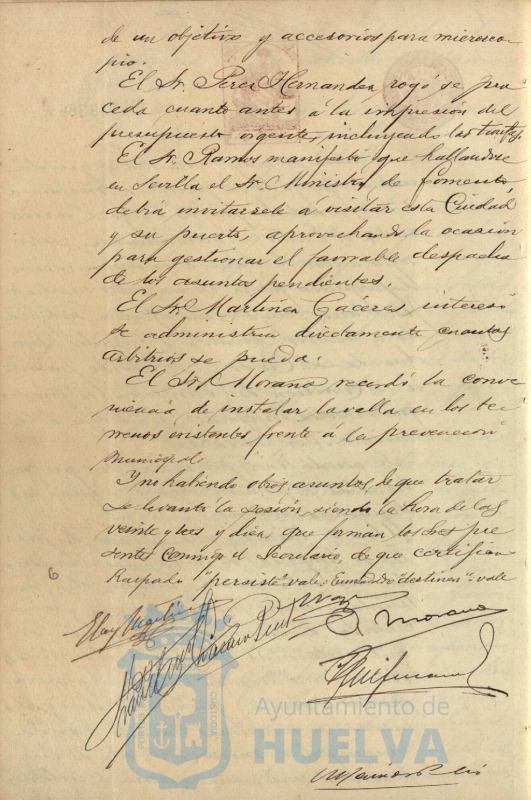 de un objetivo y accesorios para microsco
pio.
El Sr. Perez Hernandez rogó se pro
ceda cuanto antes á la impresión del
presupuesto vigente, incluyendo las tarifas.
El Sr. Ramos manifestó que hallandose
en Sevilla el Sr. Ministro de Fomento,
debia invitarsele á visitar esta Ciudad
y su puerto, aprovechando la ocasión
para gestionar el favorable despacho
de los asuntos pendientes.
El Sr. Martinez Caceres, interesó
se administren directamente cuantos
arbitrios se pueda.
El Sr. Morano recordó la conve
niencia de instalar la valla en los te
rrenos existentes frente á la prevención
municipal.
Y no habiendo otros asuntos de que tratar
se levantó la sesión, siendo la hora de las
veinte y tres y diez, que firman los Sres pre
sentes conmigo el Secretario, de que certifico
Raspado "persiste" vale. Enmendado "destinen" vale
6
O. Morano
Ayuntamiento de
HUELVA